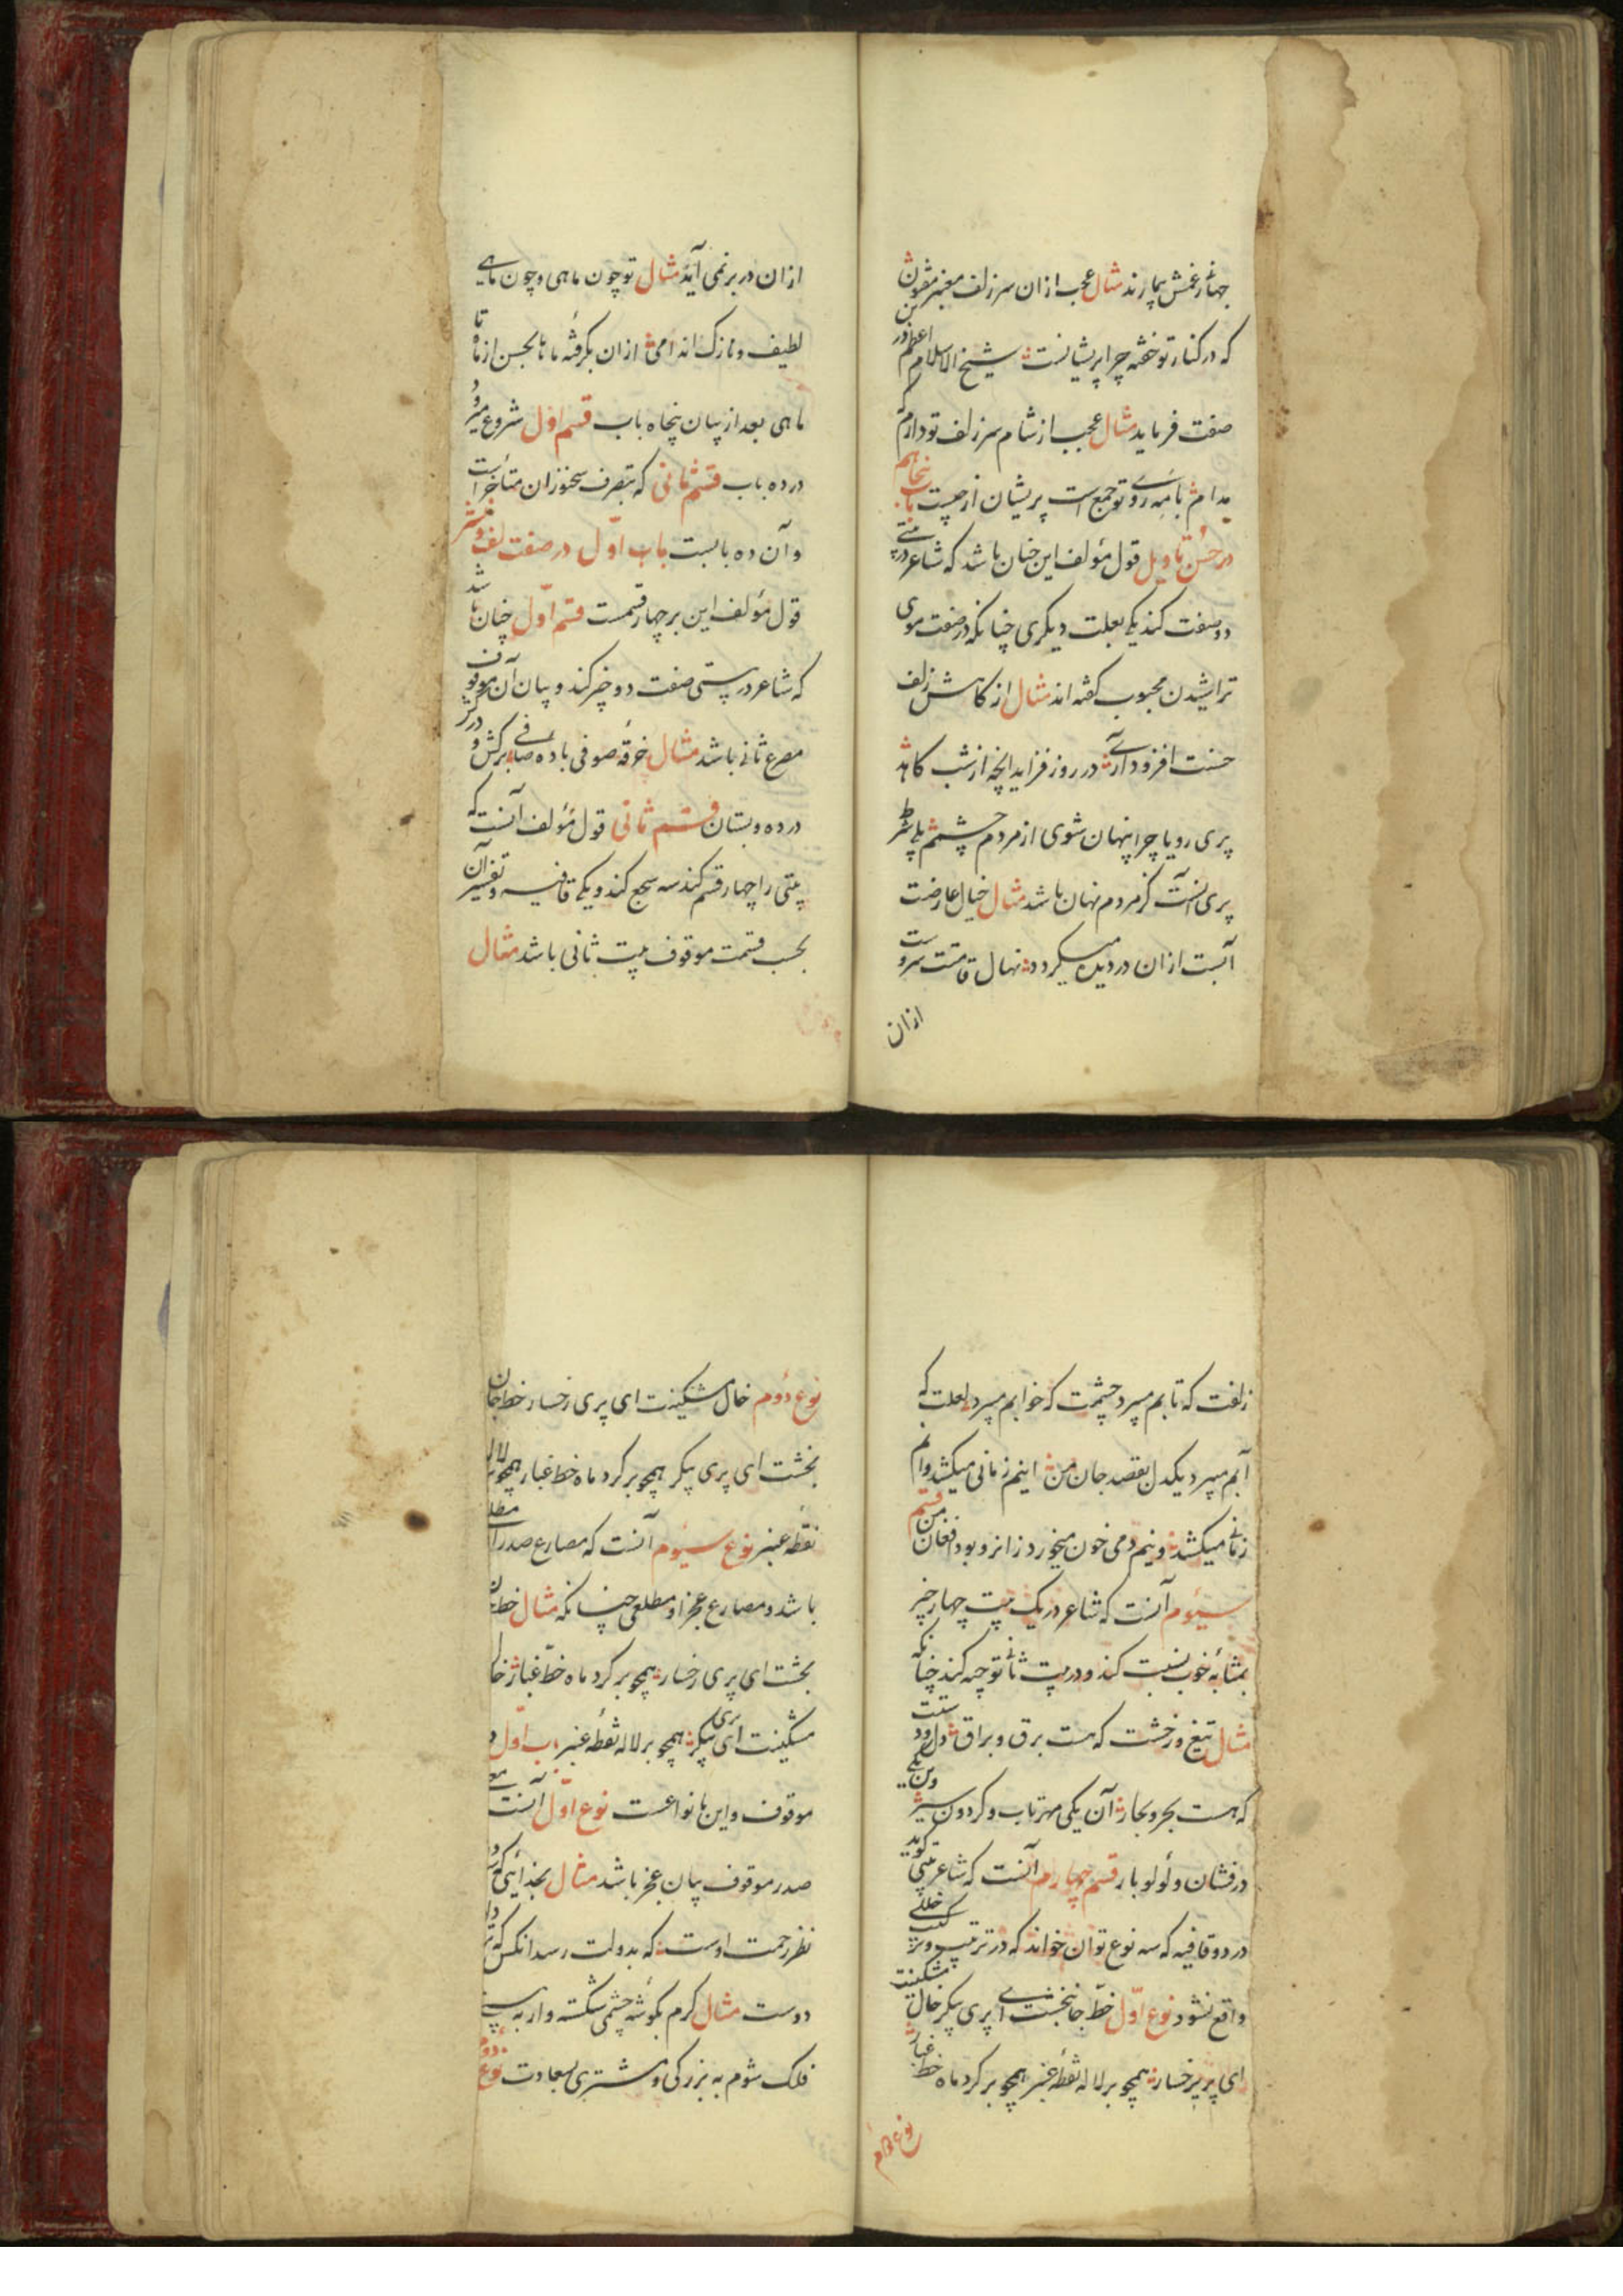 جهانی غمش بیمارند مثال عجب ازان سر زلف معنبر مفتون
که در کنار تو خفته چرا پریشانست شیخ الاسلام اعظم در این
صفت فرماید مثال عجب از شام سر زلف تو دارم که
مدام با مه روی تو جمع است پریشان از چیست باب پنجاهم
در حسن تاویل قول مؤلف این چنان باشد که شاعر در بیتی
دو صفت کند یکی بعلت دیگری چنانکه در صفت موی
تراشیدن محبوب گفته اند مثال از کاهش زلف
حسنت افزود آری در روز فزاید آنچه از شب کاهد
پری رویا چرا پنهان شوی از مردم چشمم بلی شرط
پری آنست کز مردم نهان باشد مثال خیال عارضت
آبست ازان در دیده میگردد نهال قامتت سروست
ازان
ازان در بر نمی آید مثال تو چون ماهی و چون ماهی
لطیف و نازک اندامی ازان بگرفته ما تا بحسن از ماه تا
ماهی بعد از بیان پنجاه باب قسم اول شروع میرود
در ده باب قسم ثانی که بتصرف سخنوران متاخر است
و آن ده بابست باب اول در صفت لف و نشر
قول مؤلف این بر چهار قسمت قسم اول چنان باشد
که شاعر در بیتی صفت دو چیز کند و بیان آن موقوف
مصرع ثانی باشد مثال خرقه صوفی باده صافی برکش و درکش
در ده و بستان قسم ثانی قول مؤلف آنست که
بیتی را چهار قسم کند سه سجع کند و یکی قافیه و تفسیر آن
بحسب قسمت موقوف بیت ثانی باشد مثال
زلفت که تابم میبرد چشمت که خوابم میبرد لعلت که
آبم میبرد یکدل بقصد جان من اینم زمانی میکشد وانم
زمانی میکشد وینم دمی خون میخورد زانرو بود افغان من قسم
سیوم آنست که شاعر در یک بیت چهار چیز
بمثابه خوب نسبت کند و در بیت ثانی توجیه کند چنانکه
مثال تیغ و رخشت که هست برق و براق دل و دستت
که هست بحر و بحار آن یکی مهر تاب و گردون سیر وین یکی
درفشان و لولو بار قسم چهارم آنست که شاعر بیتی گوید
در دو قافیه که سه نوع توان خواند که در ترتیب و ترکیب خللی
واقع نشود نوع اول خط جانبخشت ای پری پیکر خال مشکینت
ای پریرخسار همچو بر لاله نقطه عنبر همچو بر گرد ماه خط غبار
نوع دوم
نوع دوم خال مشکینت ای پری رخسار خط جان
بخشت ای پری پیکر همچو بر گرد ماه خط غبار همچو بر لاله
نقطه عنبر نوع سیوم آنست که مصارع صدر را مطلع
باشد و مصارع عجز او مطلعی چنانکه مثال خط جان
بخشت ای پری رخسار همچو بر گرد ماه خط غبار خال
مشکینت ای پری پیکر همچو بر لاله نقطه عنبر باب اول
موقوف و این بانواعست نوع اول آنست
صدر موقوف بیان عجز باشد مثال بخدائی که
نظر رحمت اوست که بدولت رسد آنکس که
دوست مثال کرم بگوشه چشمی شکسته وار به بینی
فلک شوم به بزرگی و مشتری بسعادت نوع دوم